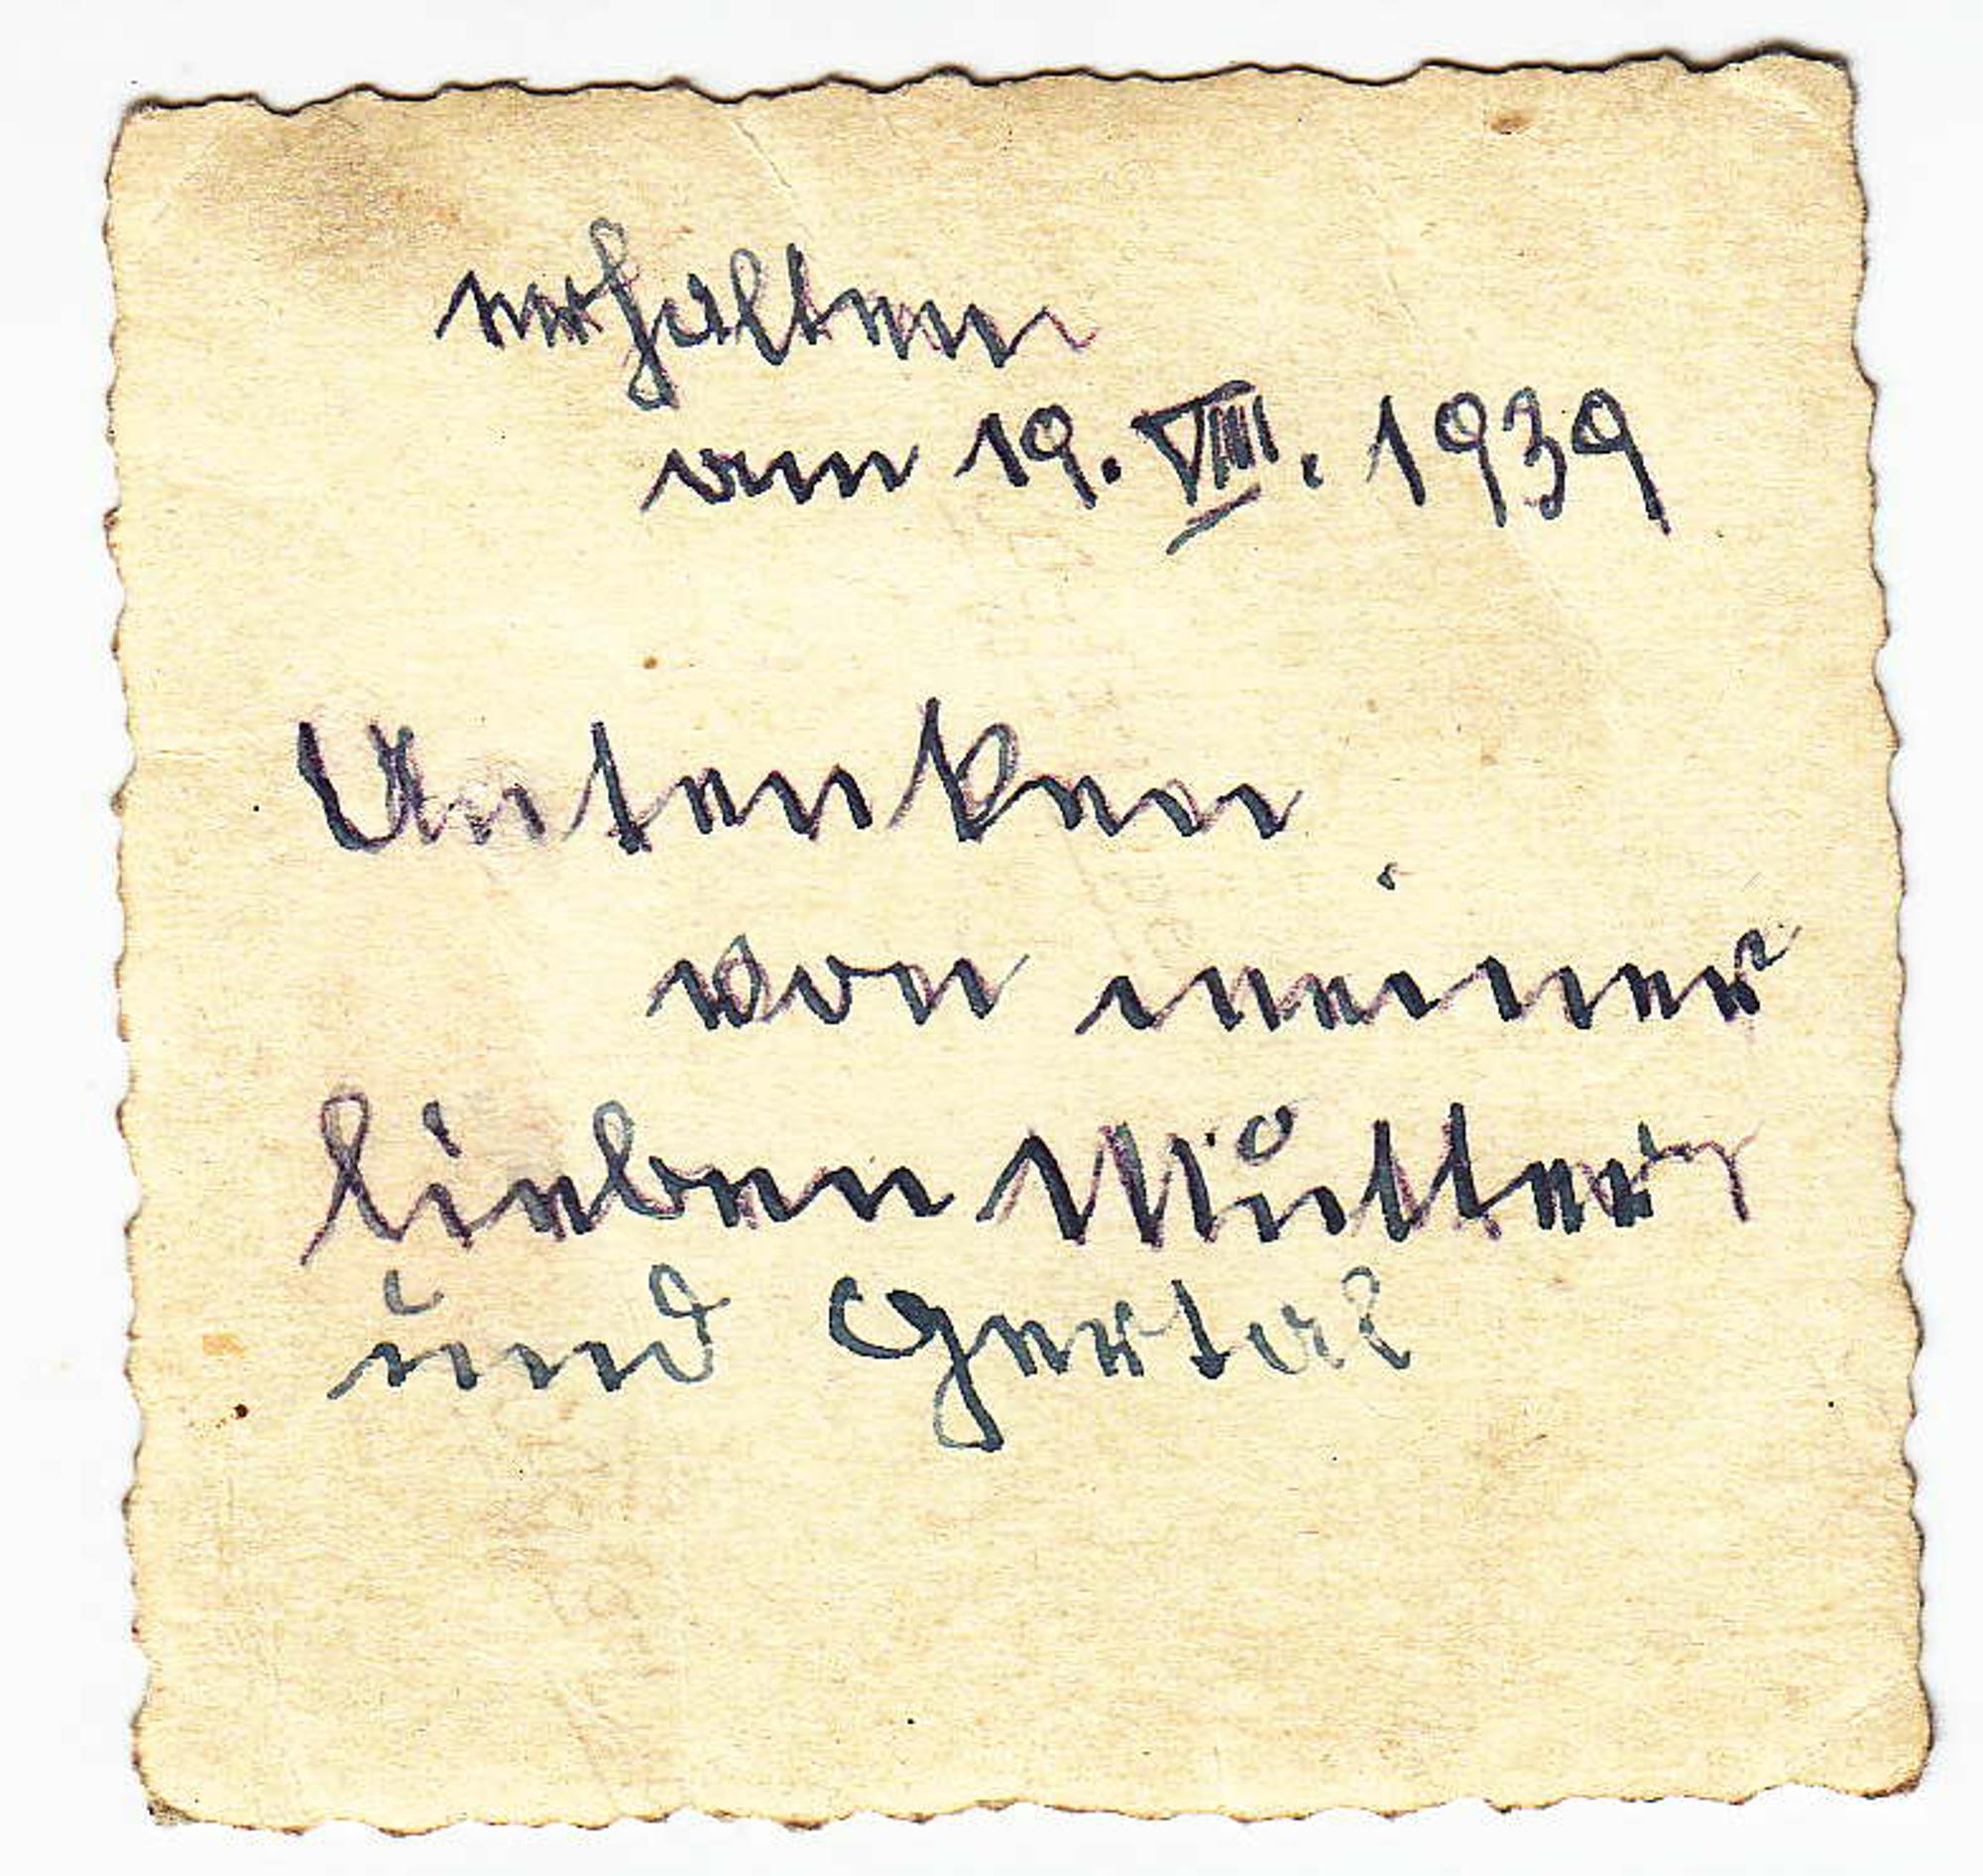 erhalten
am 19. VIII. 1939
Antenken
von meiner
lieben Mutter
und Gerta